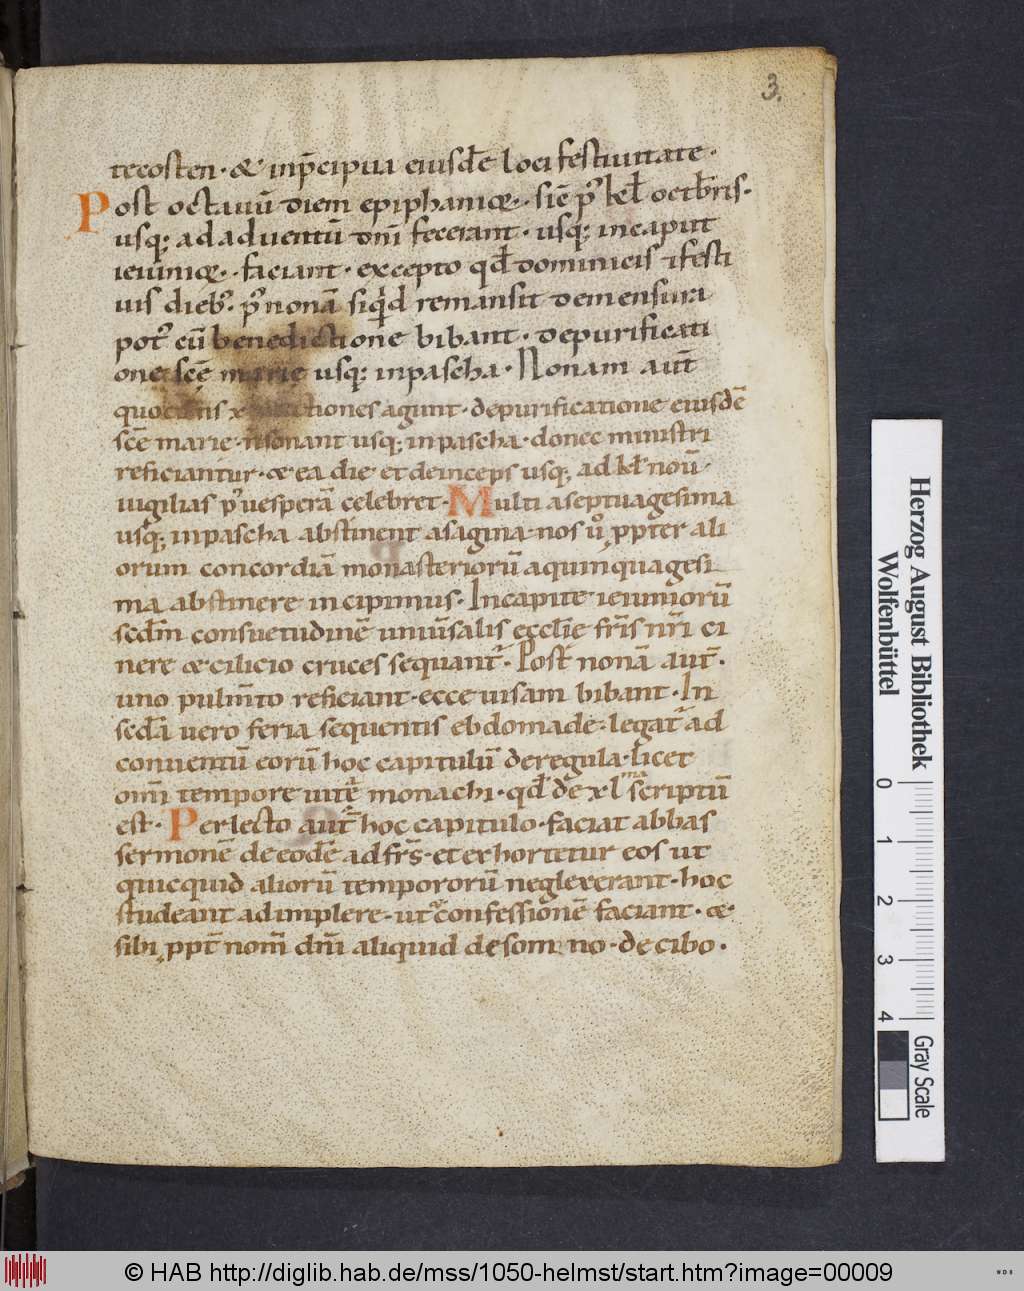 3.
tecosten · & inp̄cipua eiusdē loci festiuitate ·
Post octauū diem epiphaniae · sic̄ p' kl̄ octb̄ris ·
usq; ad aduentū dn̄i fecerant · usq; incaput
ieiuniae · faciant · excepto qd̄ dominicis & festi
uis dieb; · p' nonā siqd remansit demensura
pot' cū benedictione bibant · depurificati
one sc̄e marie usq; inpascha · Nonam aut̄
agunt · depurificatione eiusdē
sc̄e marie · n̄ sonant usq; inpascha · donec ministri
reficiantur · & ea die et deinceps usq; ad kl̄ nou̅ ·
uigilias p' uesperā celebret · Multi aseptuagesima
usq; inpascha abstinent asagina · nos ů ppter ali
orum concordiā monasteriorū aquinquagesi
ma abstinere incipimus · Incapite ieiuniorū
scdm̄ consuetudinē uniūsalis eccl̄ie fr̄s nr̄i ci
nere & cilicio cruces sequant̄ · Post nonā aut̄ ·
uno pulm̄to reficiant · ecce uisam bibant · In
sc̄da uero feria sequentis ebdomade · legat̄ ad
conuentū eorū hoc capitulū deregula · licet
omī tempore uitē monachi · qd̄ de xl ma scriptū
est · Perlecto aut̄ hoc capitulo · faciat abbas
sermonē de eodē ad fr̄s · et exhortetur eos ut
quicquid aliorū tempororū neglexerant · hoc
studeant adimplere · ut confessionē faciant · &
sibi ppt̄ nom̄ dn̄i aliquid de somno · de cibo ·
Herzog August Bibliothek
Wolfenbüttel
0 1 2 3 4
Gray Scale
© HAB http://diglib.hab.de/mss/1050-helmst/start.htm?image=00009